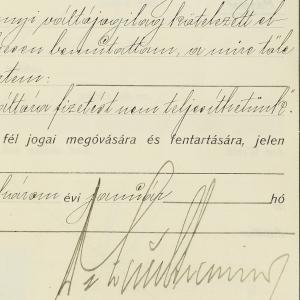 nyi váltójogilag kötelezett el
bemutattam, a mire tőle
tem:
váltóra fizetést nem teljesíthetünk".
fél jogai megóvására és fentartására, jelen
három évi január hó